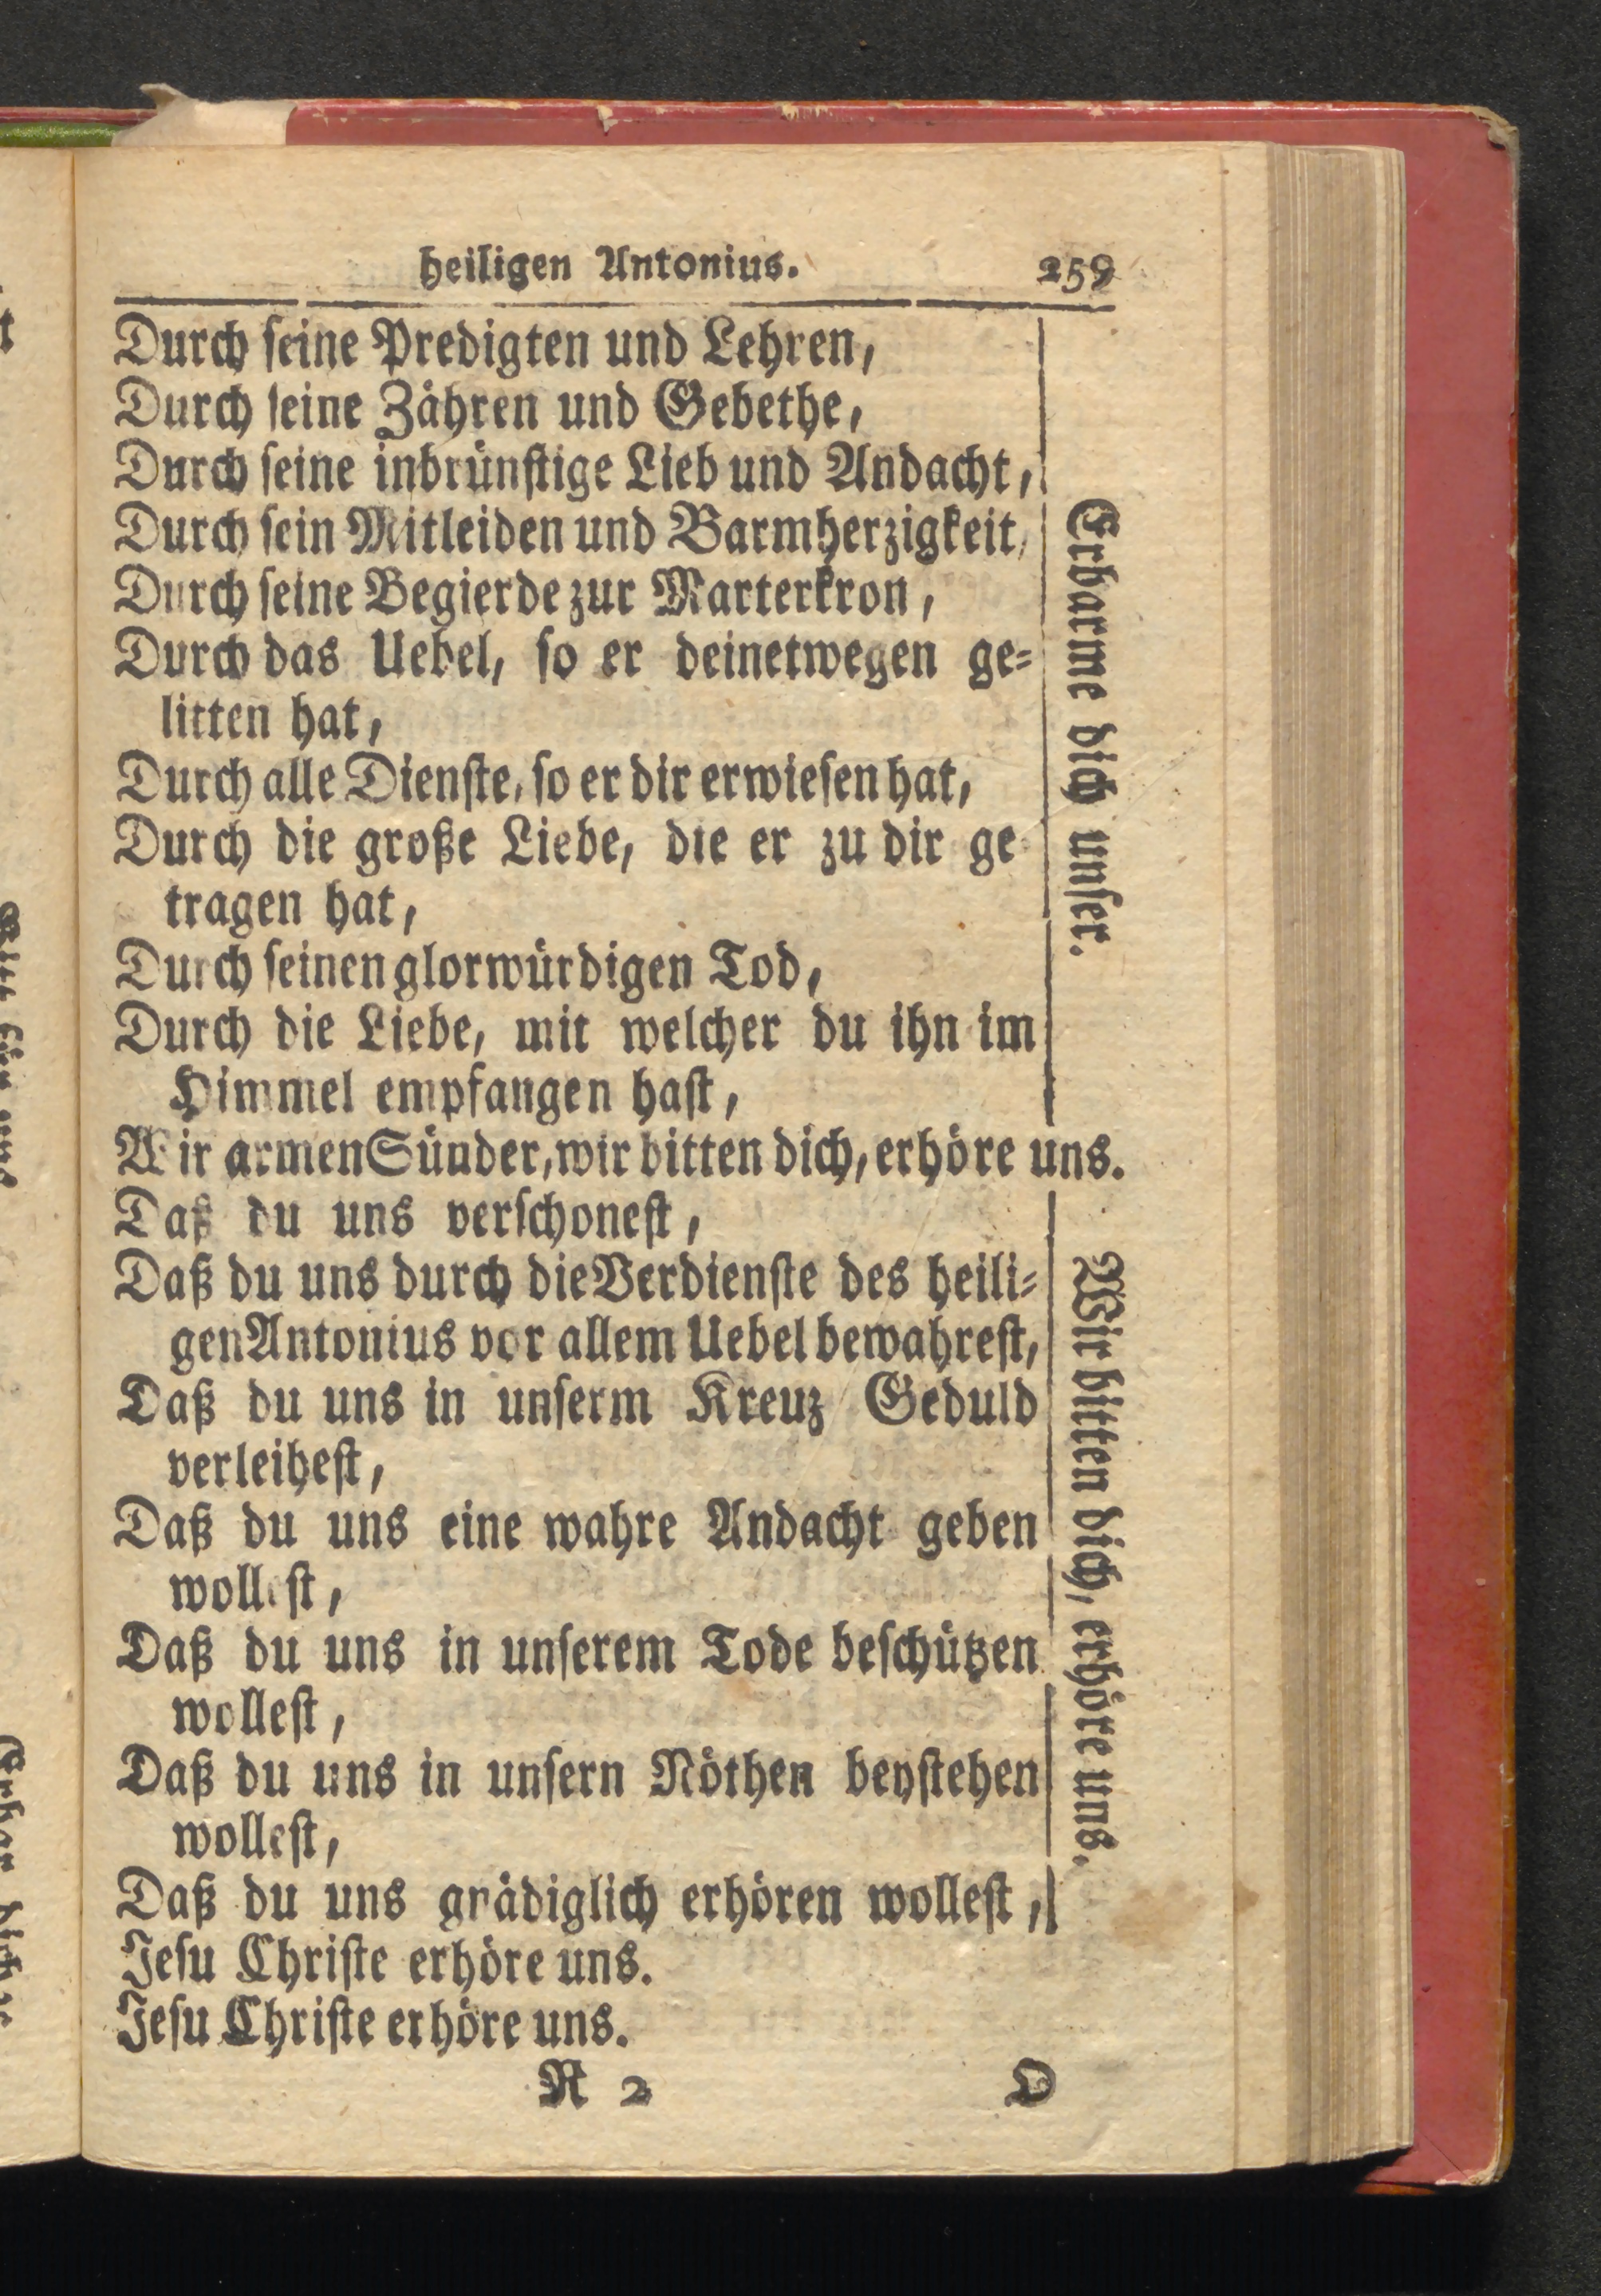 heiligen Antonius. 259
Durch ſeine Predigten und Lehren,
Durch ſeine Zähren und Gebethe,
Durch ſeine inbrünſtige Lieb und Andacht,
Durch ſein Mitleiden und Barmherzigkeit,
Durch ſeine Begierde zur Marterkron,
Durch das Uebel, ſo er deinetwegen ge-
litten hat,
Durch alle Dienſte, ſo er dir erwieſen hat,
Durch die große Liebe, die er zu dir ge
tragen hat,
Durch ſeinen glorwürdigen Tod,
Durch die Liebe, mit welcher du ihn im
Himmel empfangen haſt,
Erbarme dich unſer.
Wir armen Sünder, wir bitten dich, erhöre uns.
Daß du uns verſchoneſt,
Daß du uns durch die Verdienſte des heili-
gen Antonius vor allem Uebel bewahreſt,
Daß du uns in unſerm Kreuz Geduld
verleiheſt,
Daß du uns eine wahre Andacht geben
wolleſt,
Daß du uns in unſerem Tode beſchützen
wolleſt,
Daß du uns in unſern Nöthen beyſtehen
wolleſt,
Daß du uns gnädiglich erhören wolleſt,
Wir bitten dich, erhöre uns.
Jeſu Chriſte erhöre uns.
Jeſu Chriſte erhöre uns.
R 2 O